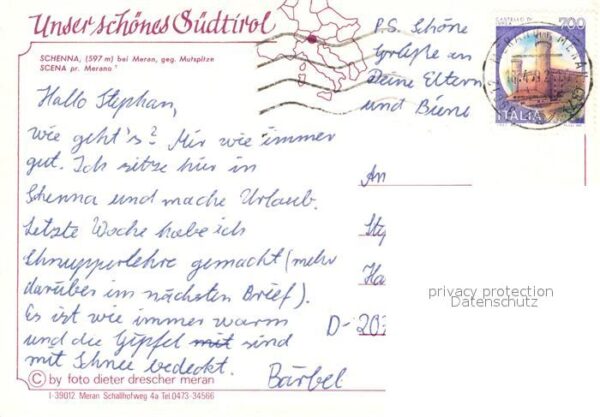 Unser schönes Südtirol
SCHENNA, (597 m) bei Meran, geg. Mutspitze
SCENA pr. Merano
Hallo Stephan,
wie geht's? Mir wie immer
gut. Ich sitze hier in
Schenna und mache Urlaub.
Letzte Woche habe ich
Schnupperlehre gemacht (mehr
darüber im nächsten Brief).
Es ist wie immer warm
und die Gipfel mit sind
mit Schnee bedeckt.
Bärbel
© by foto dieter drescher meran
I-39012 Meran Schallhofweg 4a Tel 0473-34566
P.S. Schöne
Grüße an
Deine Eltern
und Biene
700
ITALIA
An
Ste
Ha
D-20
privacy protection
Datenschutz